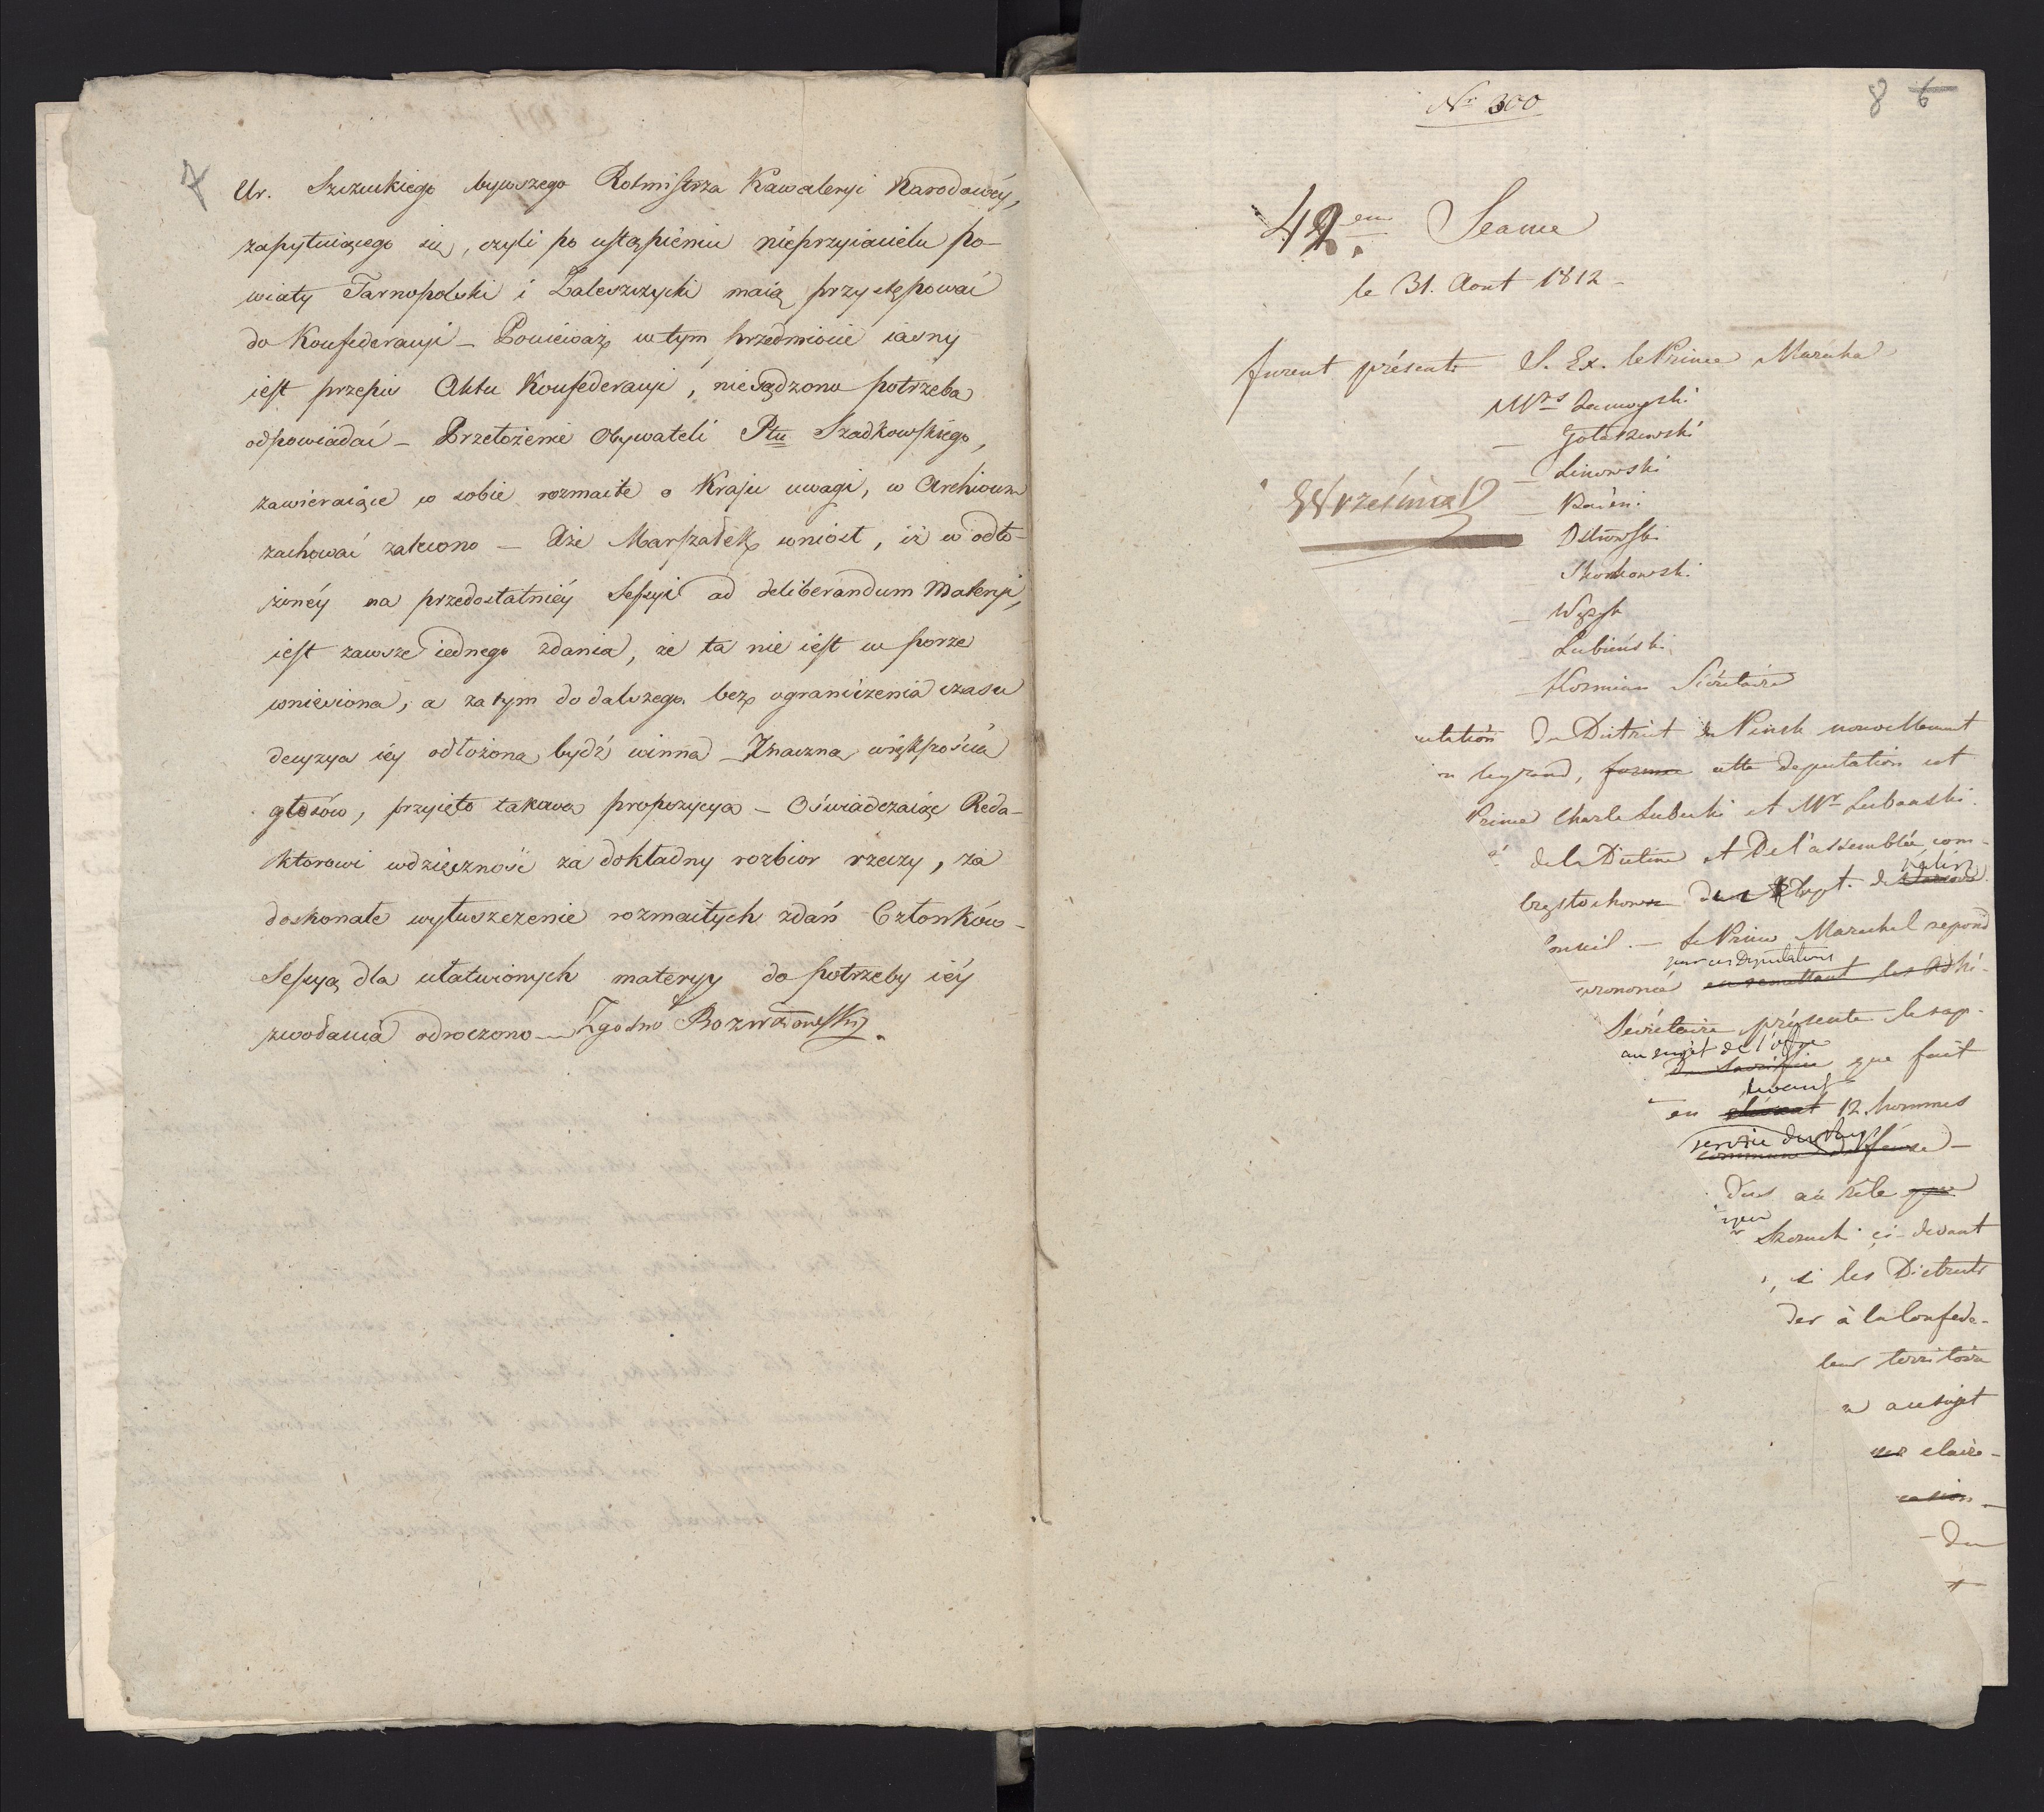 7
Ur. Szczuckiego bywszego Rotmistrza Kawaleryi Narodowéy,
zapytuiącego się, czyli po ustąpieniu nieprzyiaciela po-
wiaty Tarnopolski i Zaleszczycki maią przystępować
do Konfederacyi – Ponieważ w tym przedmiocie iasny
iest przepis Aktu Konfederacyi, niesądzono potrzeba
odpowiadać – Przełożenie Obywateli Ptu Szadkowskiego,
zawieraiące w sobie rozmaite o Kraju uwagi, w Archiwum
zachować zalecono – Xże Marszałek wniosł, iż w odło-
żonéy na przedostatniéy Sessyi ad deliberandum Materyi,
iest zawsze iednego zdania, że ta nie iest w porze
wniesiona, a zatym do dalszego bez ograniczenia czasu
decyzya iéy odłożona bydź winna – Znaczną większością
głosów, przyięto takową propozycyą – Oświadczaiąc Reda-
ktorowi wdzięczność za dokładny rozbior rzeczy, za
doskonałe wyłuszczenie rozmaitych zdań Członków –
Sessyą dla ułatwionych materyy do potrzeby iéy
zwołania odroczono – Zgodno Rozwadowski.
Nr 300
8 6
42em Seance
le 31. Aout 1812 –
furent présents S. Ex. le Prince Marécha
Mrs Zamoyski
– Gołaszewski
– Linowski
Września
– Ostrowski
– Wężyk
– Łubieński
– Kozmian Sécretaire
utation du District de Pinsk nouvellement
legrand, forme cette deputation est
Prince Charle Lubecki et Mr Lubanski.
de la Dietine et De l'assemblée com-
Kalisz
Częstochow Dept. de
onseil. – Le Prince Marechal repond
par ces Deputations
prononcé en remettant les Adhé-
Sécrétaire présente le rap-
au sujet de l'offre
Du Sacrifice que fait
levant
en 12 hommes
service du Pays
commune défense –
dus au zèle que
ci-devant
, si les Districts
der à la Confede-
leur territoire
au sujet
claire-
cation –
– du